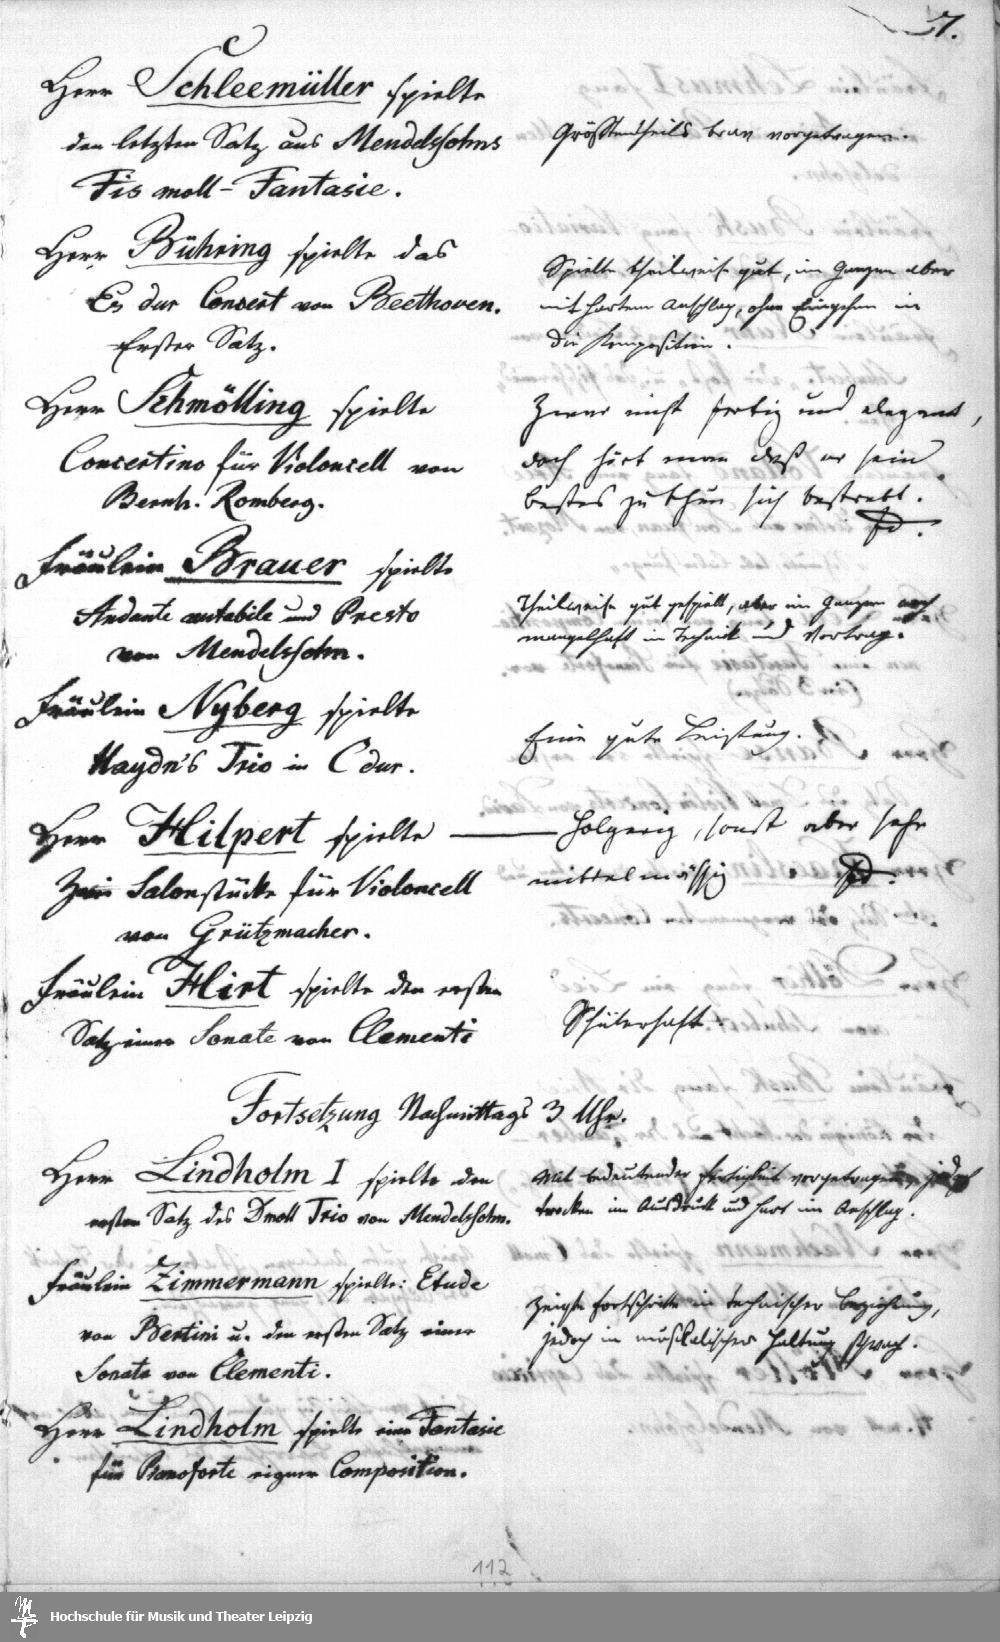 7.
Herr Schleemüller spielte
den letzten Satz aus Mendelssohns
Fis moll-Fantasie.
Größtentheils brav vorgetragen.
Herr Bühring spielte das
Es dur Concert von Beethoven.
Erster Satz.
Spielte theilweise gut, im Ganzen aber
mit hartem Anschlag, ohne Eingehen in
die Komposition.
Herr Schmölling spielte
Concertino für Violoncell von
Bernh. Romberg.
Zwar nicht fertig und elegant,
doch hört man daß er sein
bestes zu thun sich bestrebt.
Fräulein Brauer spielte
Andante cantabile und Presto
von Mendelssohn.
Theilweise gut gespielt, aber im Ganzen noch
mangelhaft in Technik und Vortrag.
Fräulein Nyberg spielte
Haydn's Trio in C dur.
Eine gute Leistung.
Herr Hilpert spielte
Zwei Salonstücke für Violoncell
von Grützmacher.
Holperig, sonst aber sehr
mittelmässig
Fräulein Hirt spielte den ersten
Satz einer Sonate von Clementi
Schülerhaft.
Fortsetzung Nachmittags 3 Uhr.
Herr Lindholm I spielte den
ersten Satz des Dmoll Trio von Mendelssohn.
Mit bedeutender Fertigkeit vorgetragen, jedoch
trocken im Ausdruck und hart im Anschlag.
Fräulein Zimmermann spielte: Etude
von Bertini u. den ersten Satz einer
Sonate von Clementi.
Zeigte Fortschritte in technischer Beziehung,
jedoch in musikalischer Haltung schwach.
Herr Lindholm spielte eine Fantasie
für Pianoforte eigner Composition.
112
Hochschule für Musik und Theater Leipzig